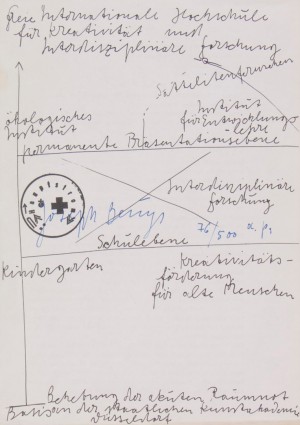 freie Internationale Hochschule
für Kreativität und
Interdisziplinäre Forschung
Satteliten
Institut
für Entwicklungs
-lehre
ökologisches
Institut
permanente Präsentationsebene
Interdisziplinäre
Forschung
Joseph Beuys
76/500 a.p.
Schulebene
Kindergarten
Kreativitäts-
förderung
für alte Menschen
Behebung der akuten Raumnot
Basis an der staatlichen Kunstakademie
Düsseldorf